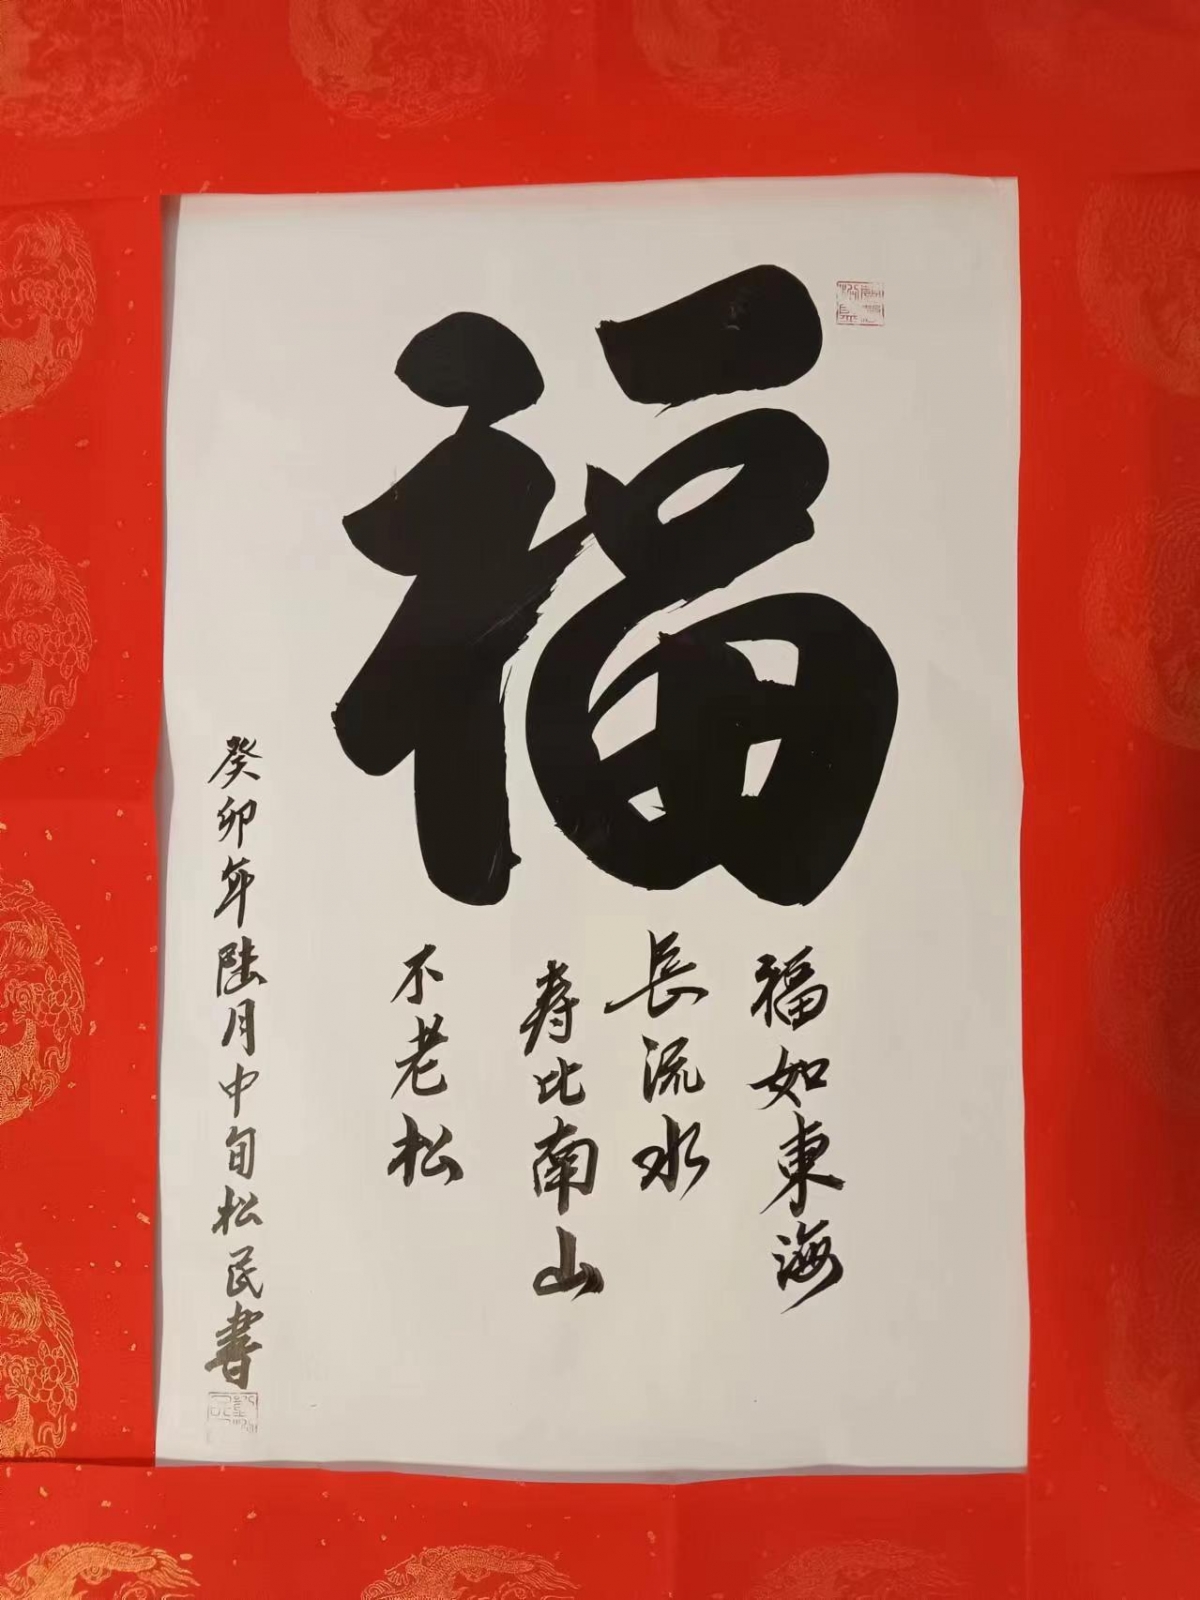 福
福如東海
長流水
寿比南山
不老松
癸卯年陆月中旬松民書